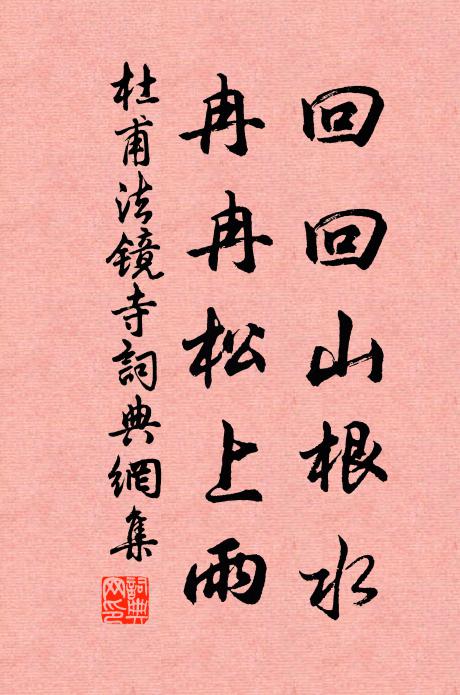 回回山根水
冉冉松上雨
杜甫法鏡寺詞典網集
詞典網印